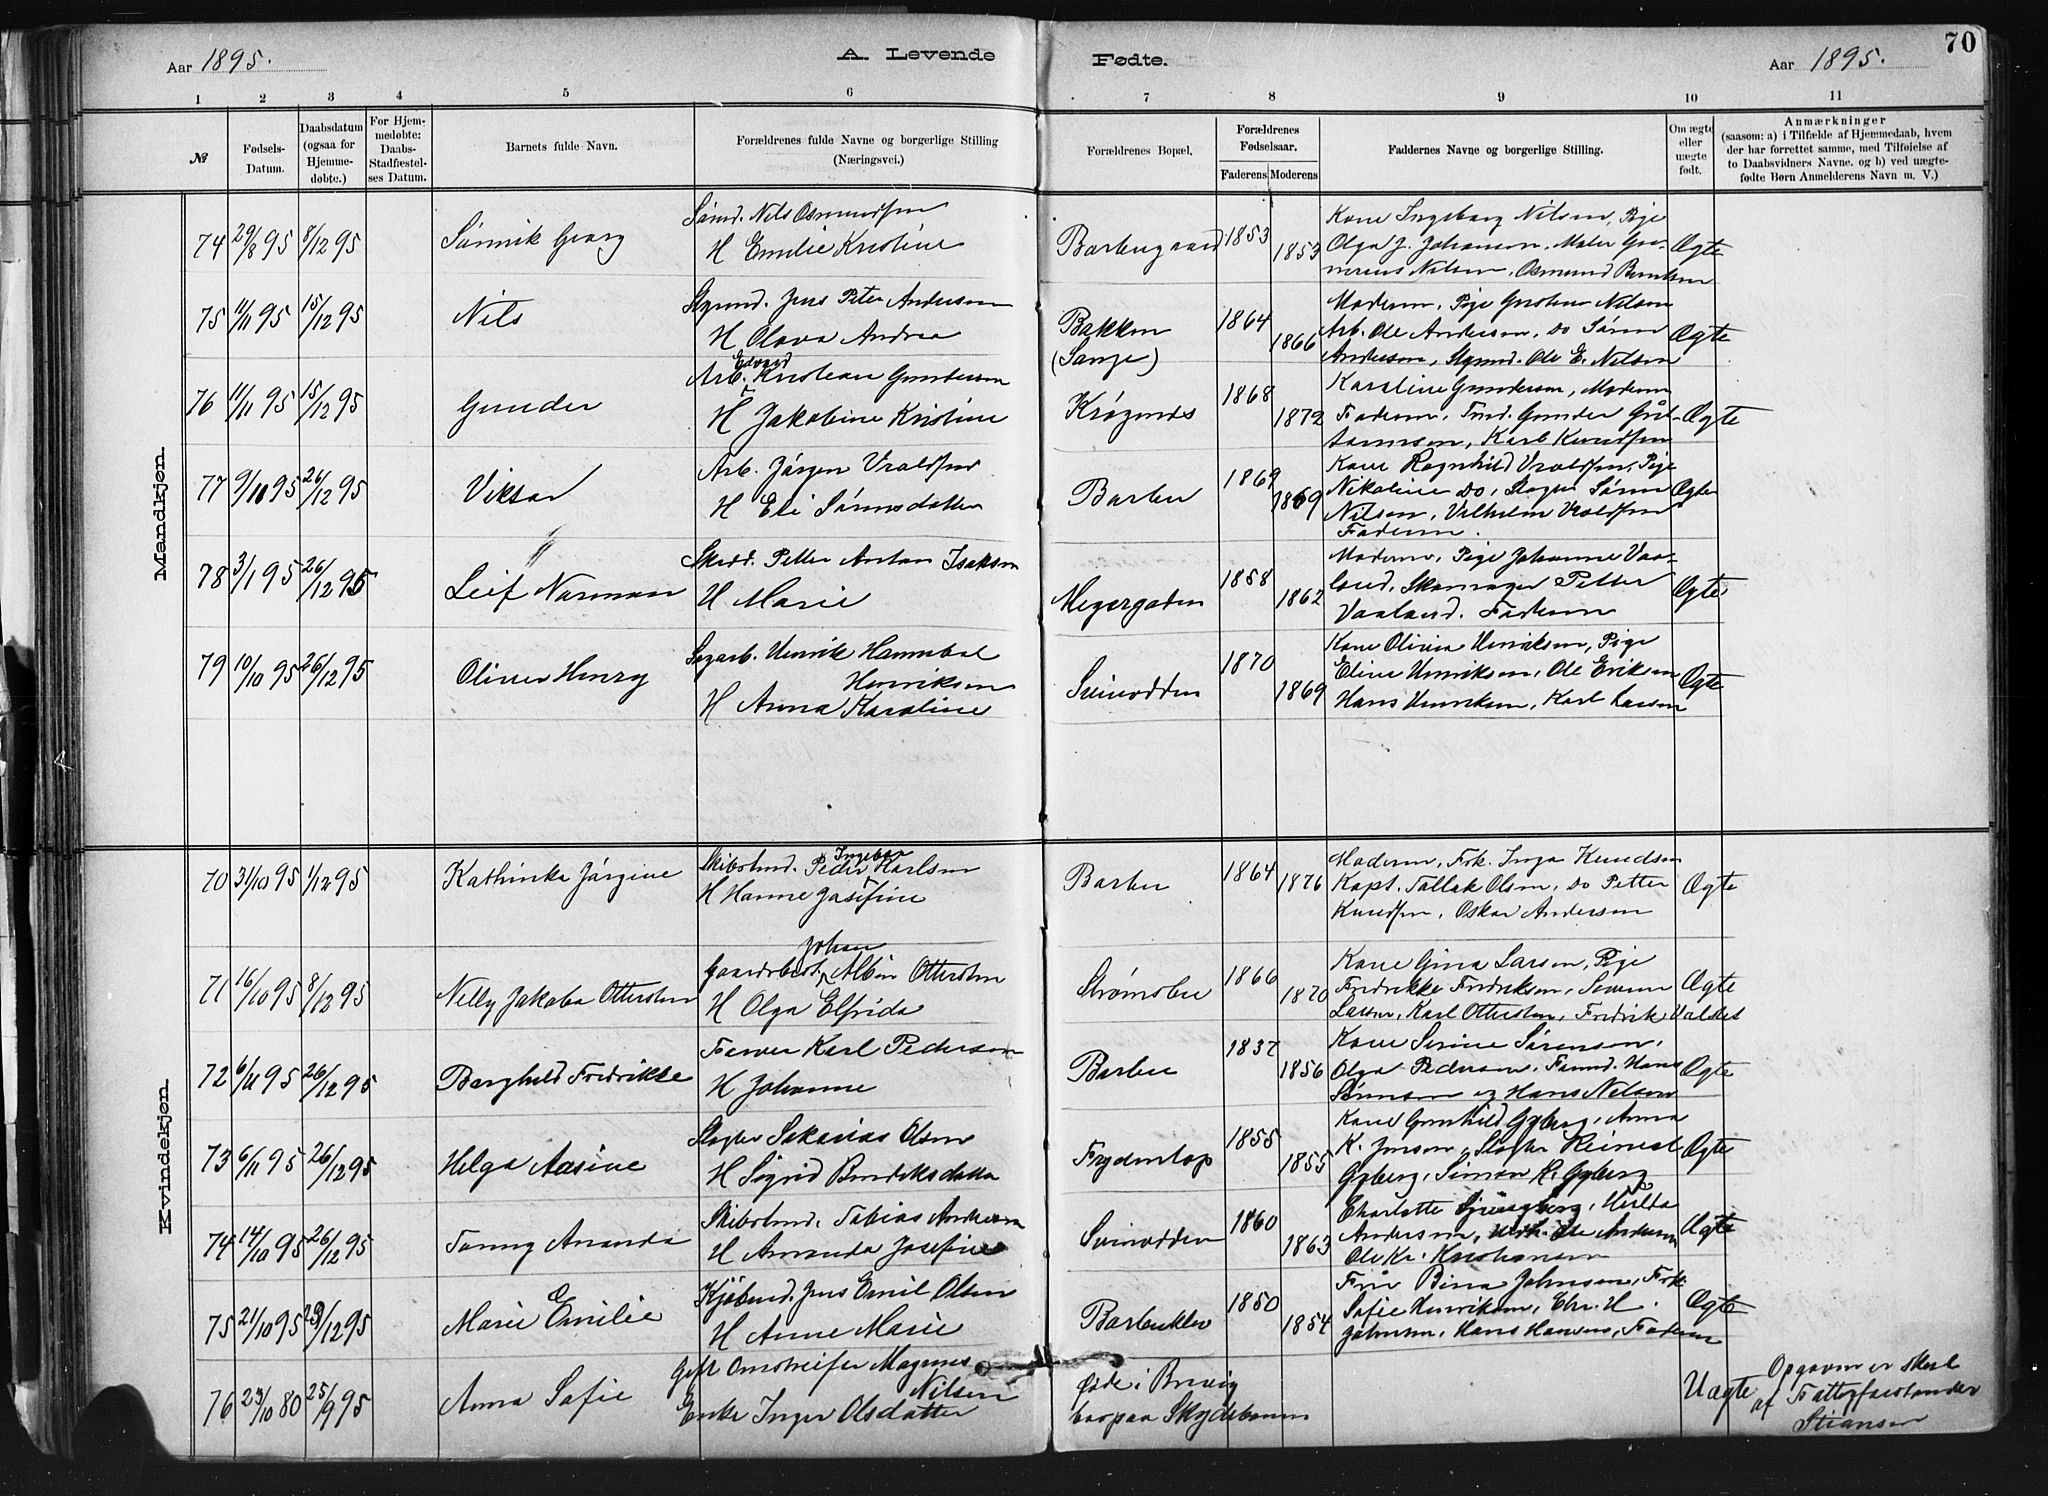 70
Aar 1895.
A. Levende
Fødte.
Aar 1895.
1 2 3 4 5 6 7 8 9 10 11
№
Fødsels-
Datum.
Daabsdatum
(ogsaa for
Hjemme-
døbte.)
For Hjem-
medøbte:
Daabs-
Stadfæstel-
ses Datum.
Barnets fulde Navn.
Forældrenes fulde Navne og borgerlige Stilling
(Næringsvei.)
Forældrenes Bopæl.
Forældrenes
Fødselsaar.
Faderens Moderens
Faddernes Navne og borgerlige Stilling.
Om ægte
eller
uægte
født.
Anmærkninger
(saasom: a) i Tilfælde af Hjemmedaab, hvem
der har forrettet samme, med Tilføielse af
to Daabsvidners Navne. og b) ved uægte-
fødte Børn Anmelderens Navn m. V.)
Mandkjøn.
74 29/8 95 8/12 95
Sønnik Georg
Sømd. Nils Osmundsen
H Emilie Kristine
Barbugaard 1853 1853
Kone Ingeborg Nilsen, Pige
Olga J. Johansen, Maler
Nilsen, Osmund
Ægte
75 11/11 95 15/12 95
Nils
Styrmd. Jens Peter Andersen
H Olava Andrea
Bakken
(Sange)
1864 1866
Moderen, Pige Nilsen
Arb. Ole Andersen, do Søren
Andersen, Styrmd. Ole E. Nilsen
Ægte
76 11/11 95 15/12 95
Gunder
Edvard
Arb. Kristian Gundersen
H Jakobine Kristine
Krøgenes 1868 1872
Karoline Gundersen, Moderen
Faderen, Gunder
Karl Knudsen
Ægte
77 9/10 95 26/12 95
Viktor
Arb. Jørgen Vraldsen
H Eli Sørensdatter
Barbu 1869 1869
Kone Ragnhild Vraldsen, Pige
Nikoline do, Slagter Søren
Nilsen, Vilhelm Vraldsen
Faderen.
Ægte
78 3/1 95 26/12 95
Leif Norman
Skrdd. Petter Anton Isaksen
H Marie
Meyergaden 1858 1862
Moderen, Pige Johanne Vaa-
land, Skomager Petter
Vaaland. Faderen
Ægte
79 10/10 95 26/12 95
Oliver Henry
Sagarb. Henrik Hannibal
Henriksen
H Anna Karoline
Svinodden 1870 1869
Kone Olivia Henriksen, Pige
Eline Henriksen, Ole Eriksen
Hans Henriksen, Karl Larsen
Ægte
Kvindekjøn.
70 31/10 95 1/12 95
Kathinka Jørgine
Ingebar
Skibstmd. Peder Karlsen
H Hanne Josefine
Barbu 1864 1876
Moderen, Frk. Inga Knudsen
Kapt. Tallak Olsen, do Petter
Knudsen, Oskar Andersen
Ægte
71 16/10 95 8/12 95
Nelly Jakoba Ottersten
Johan
Gaardsbest. Albin Ottersten
H Olga Elfrida
Strømsbu 1866 1870
Kone Gina Larsen, Pige
Fredrikke Fredriksen, Severin
Larsen, Karl Ottersten, Fredrik Valstet
Ægte
72 6/11 95 26/12 95
Borghild Fredrikke
Farver Karl Pedersen
H Johanne
Barbu 1837 1856
Kone Serine Sørensen,
Olga Pedersen, Hans
Sørensen og Hans Nilsen
Ægte
73 6/11 95 26/12 95
Helga Aasine
Slagter Sakarias Olsen
H Sigrid Bendiksdatter
Frydentop 1855 1855
Kone Gunhild Gyberg, Anna
K. Jensen, Slagter Reinert
Gyberg, Simon K. Gyberg
Ægte
74 14/10 95 26/12 95
Fanny Amanda
Skibstmd. Tobias Andersen
H Amanda Josefine
Svinodden 1860 1863
Charlotte Ljungberg, Hilda
Andersen, Ole Andersen
Ole Kr. Kristiansen
Ægte
75 21/10 95 29/12 95
Marie Emilie
Kjøbmd. Jens Emil Olsen
H Anne Marie
Barbuklev 1850 1854
Fru Bina Johnsen, Frk.
Sofie Henriksen, Chr. H.
Johnsen, Hans Hansen, Faderen
Ægte
76 23/10 80 25/9 95
Anna Sofie
Gift Omstreifer Magnus
Nilsen
Enke Inger Olsdatter
født i Brevig
bor paa Skydebanen
Uægte
Opgaven er skeet
af Fattigforstander
Stiansen